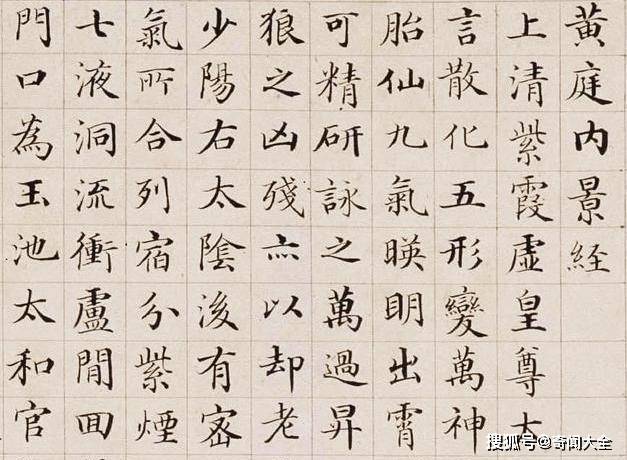 黄庭内景経
上清紫霞虚皇尊
言散化五形變萬神
胎仙九氣暎明出霄
可精研詠之萬過昇
狼之凶殘亦以却老
少陽右太陰後有密
氣所合列宿分紫煙
七液洞流衝盧閒囬
門口為玉池太和官
搜狐号@奇闻大全